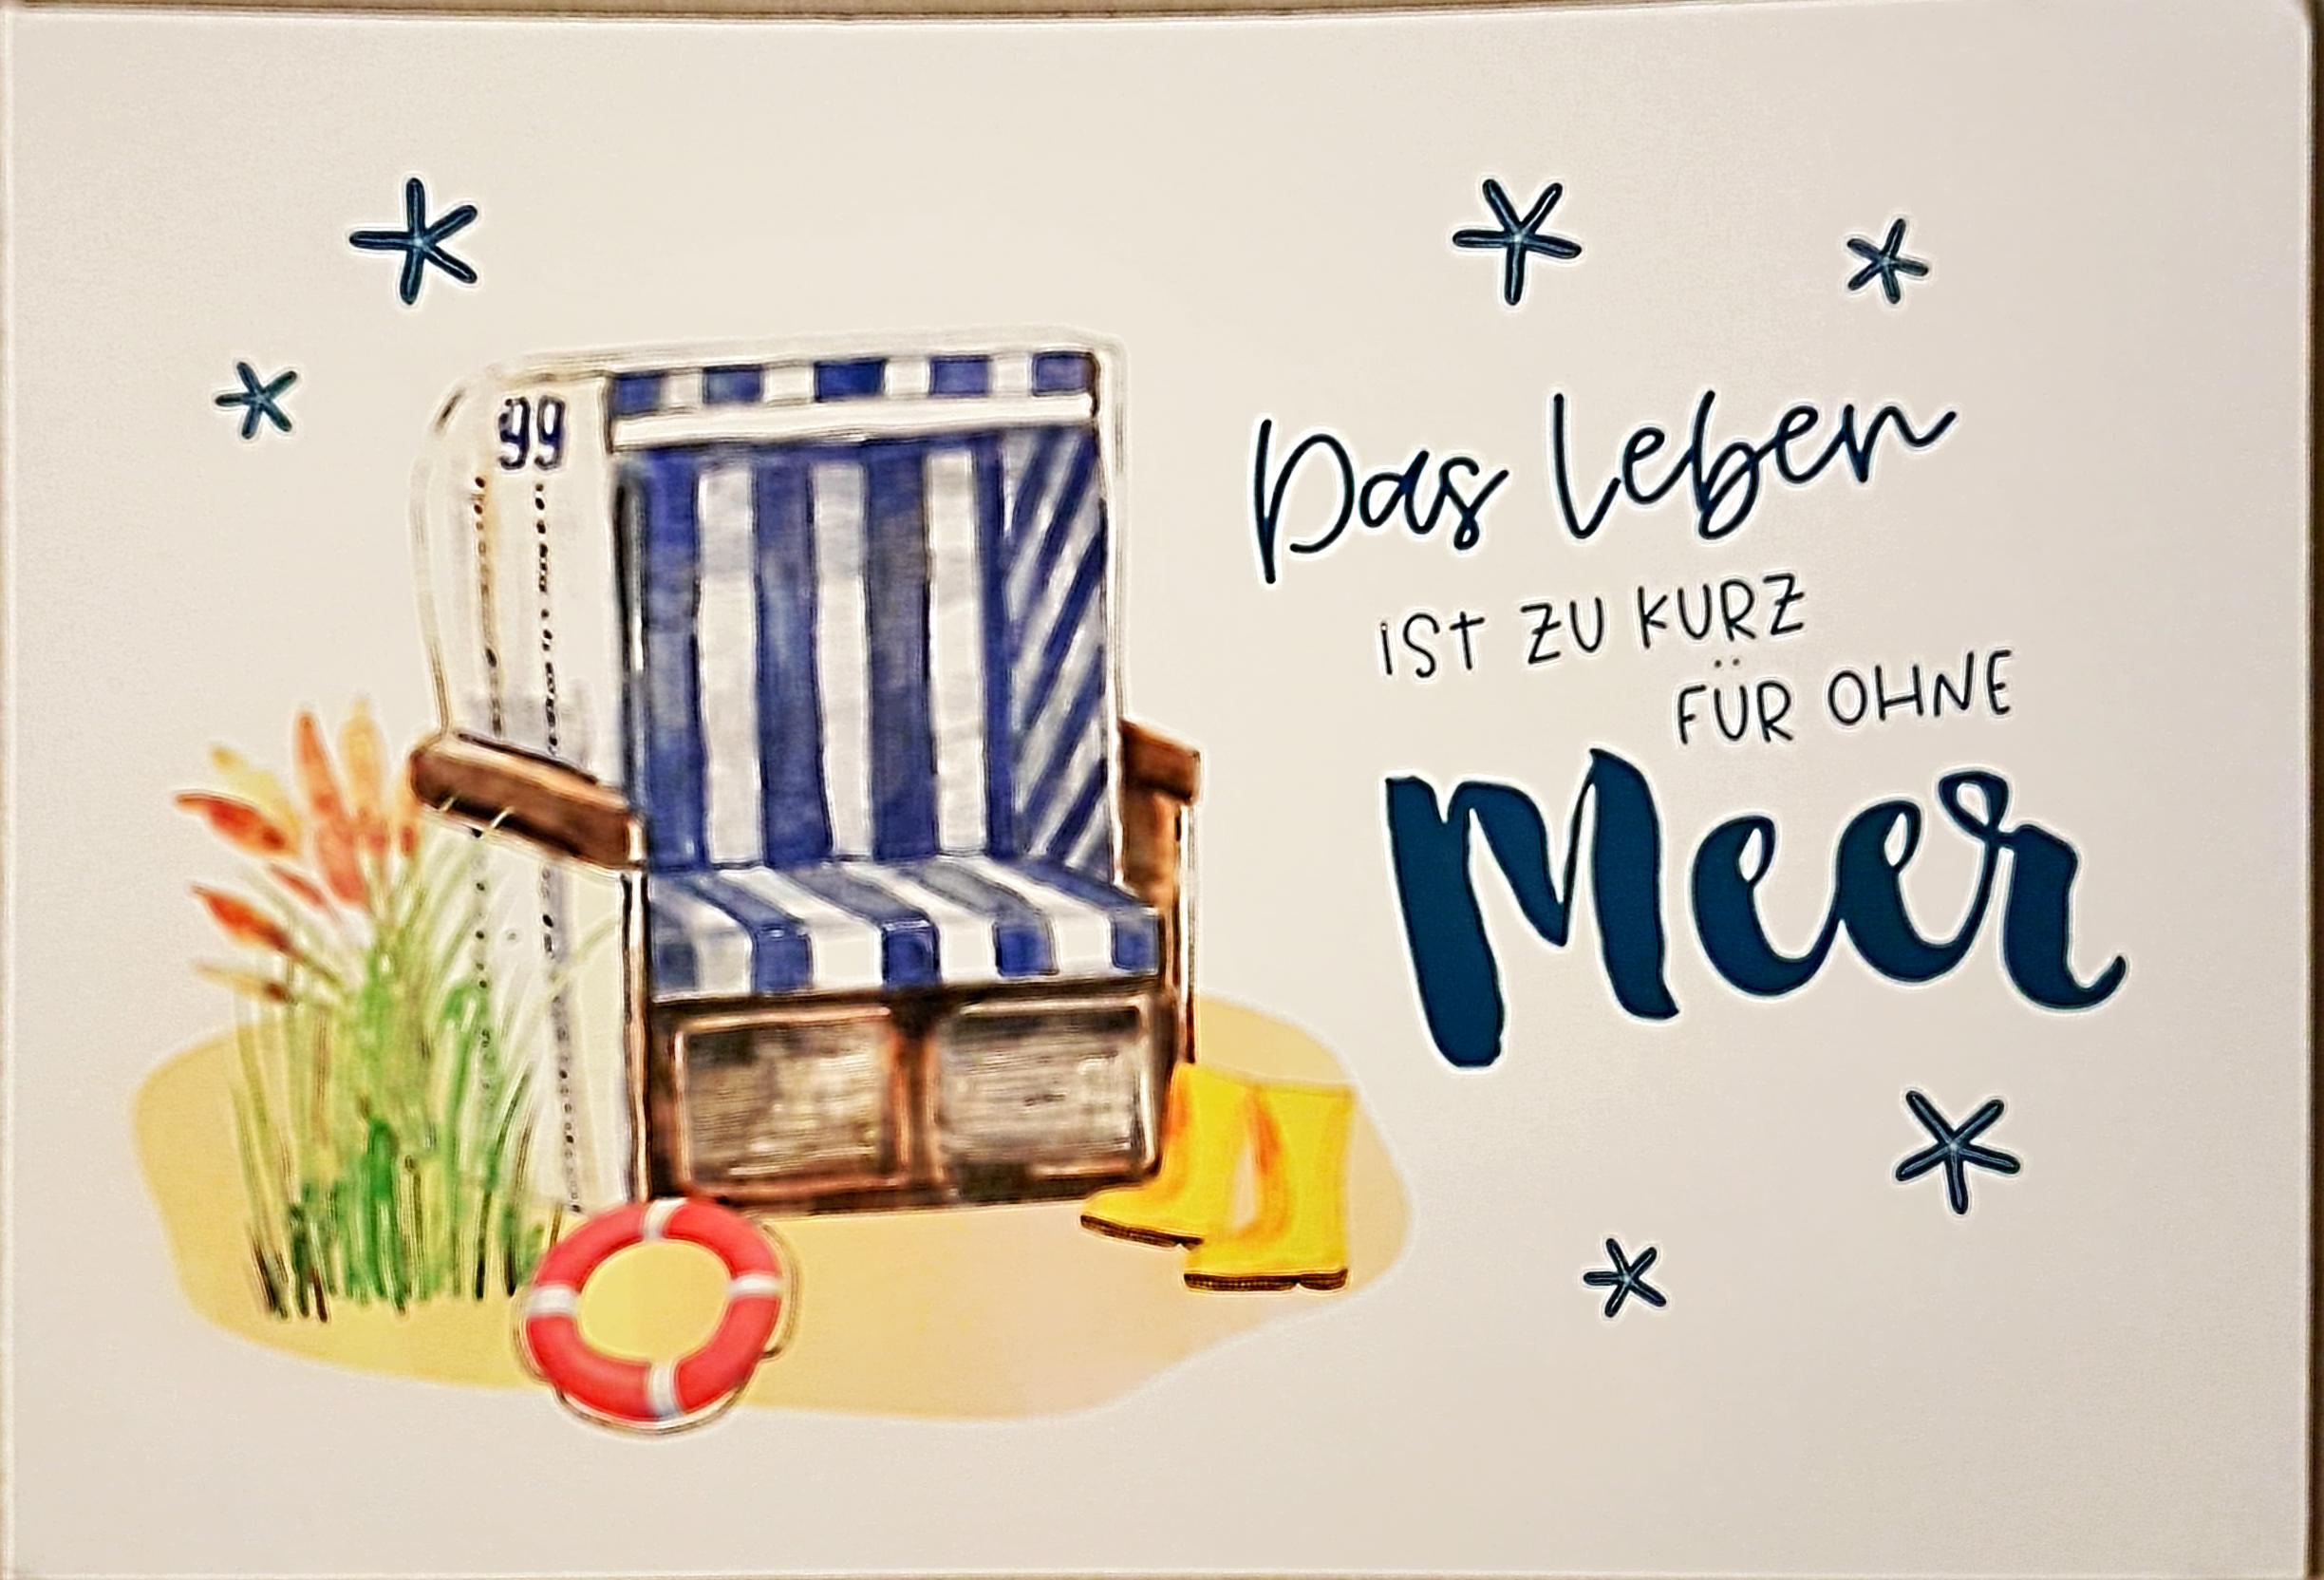 99
Das Leben
iST ZU KURZ
FÜR OHNE
Meer